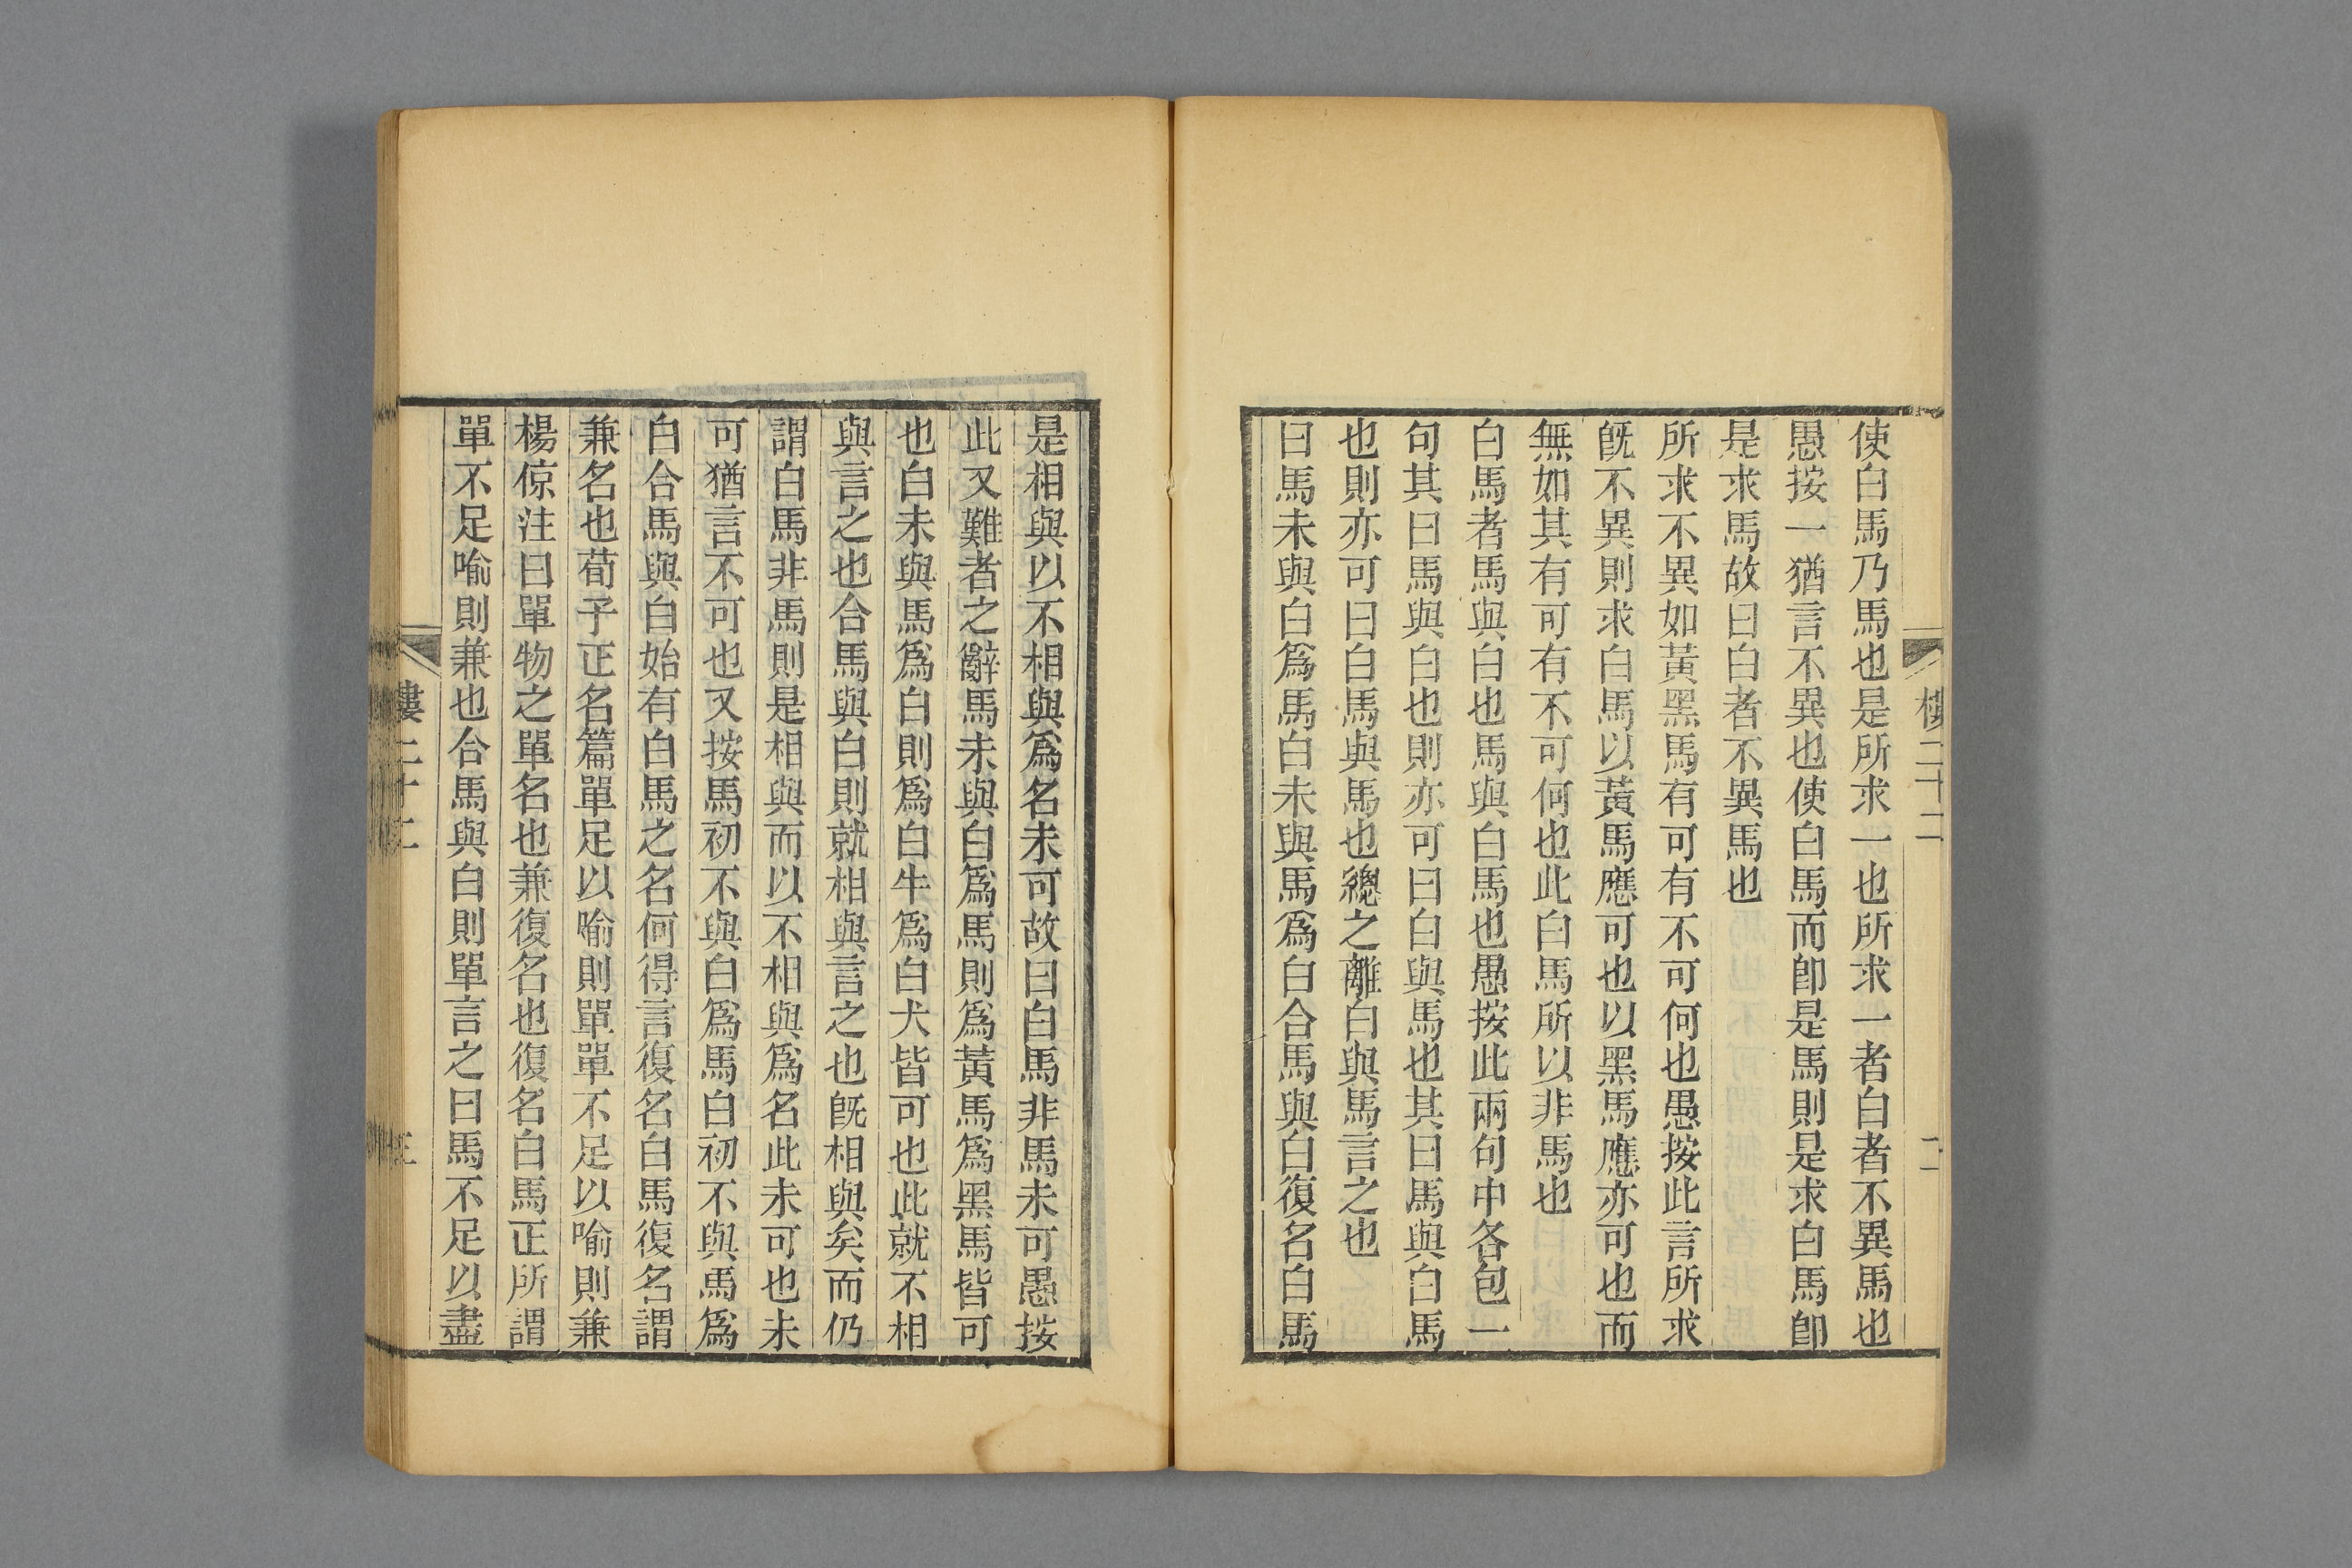 使白馬乃馬也是所求一也所求一者白者不異馬也
愚按一猶言不異也使白馬而卽是馬則是求白馬卽
是求馬故曰白者不異馬也
所求不異如黃黑馬有可有不可何也愚按此言所求
旣不異則求白馬以黃馬應可也以黑馬應亦可也而
無如其有可有不可何也此白馬所以非馬也
白馬者馬與白也馬與白馬也愚按此兩句中各包一
句其曰馬與白也則亦可曰白與馬也其曰馬與白馬
也則亦可曰白馬與馬也總之離白與馬言之也
曰馬未與白爲馬白未與馬爲白合馬與白復名白馬
是相與以不相與爲名未可故曰白馬非馬未可愚按
此又難者之辭馬未與白爲馬則爲黃馬爲黑馬皆可
也白未與馬爲白則爲白牛爲白犬皆可也此就不相
與言之也合馬與白則就相與言之也旣相與矣而仍
謂白馬非馬則是相與而以不相與爲名此未可也未
可猶言不可也又按馬初不與白爲馬白初不與馬爲
白合馬與白始有白馬之名何得言復名白馬復名謂
兼名也荀子正名篇單足以喻則單單不足以喻則兼
楊倞注曰單物之單名也兼復名也復名白馬正所謂
單不足喻則兼也合馬與白則單言之曰馬不足以盡
樓二十二
三